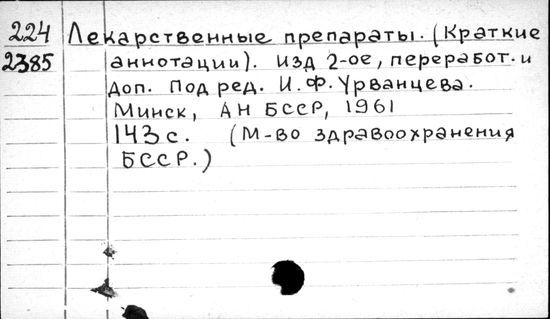 224 Лекарственные препараты. (Краткие
2385 аннотации). изд 2-ое, переработ. и
доп. Под ред. И.Ф. Урванцева.
Минск, АН БССР, 1961
143 с. (М-во здравоохранения
БССР.)